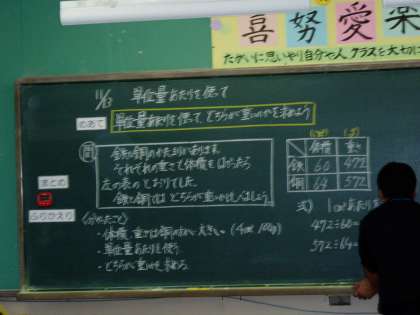 喜 努 愛 楽
たがいに思いやり自分や人 クラスを大切に
11/13 単位量あたりを使って
めあて 単位量あたりを使って、どちらが重いのかを求めよう
問
鉄と銅のかたまりがあります。
それぞれの重さと体積をはかったら
左の表のとおりでした。
鉄と銅ではどちらが重いか比べましょう。
体積 重さ
鉄 60 472
銅 64 572
まとめ
ふりかえり
〈分かったこと〉
・体積、重さは銅の方が大きい。
・単位量あたりを使う
・どちらが重いかを求める
式)
472÷60=
572÷64=